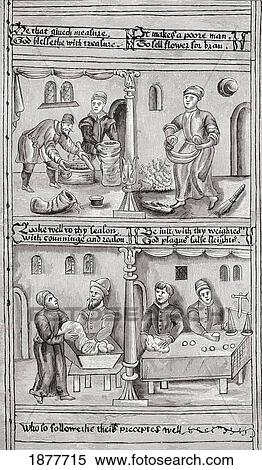 He that giueth measure,
God blesse the with treasure.
It makes a poore man,
To sell flower for bran.
well to thy season
with conninge and reason.
Be iust with thy weightes
God plague false sleights.
Who so followthe theis preceptes well
1877715 www.fotosearch.com